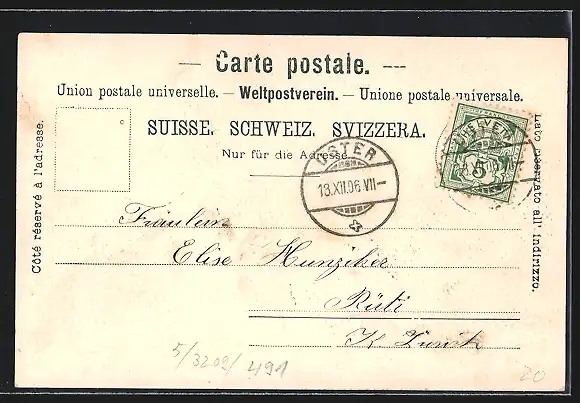 — Carte postale. ---
Union postale universelle. — Weltpostverein. — Unione postale universale.
SUISSE. SCHWEIZ. SVIZZERA.
Nur für die Adresse.
Côté réservé à l'adresse.
Lato riservato all' indirizzo.
USTER
18.XII.06.VII—
HELVETIA
5
Fräulein
Elise Hunziker
Rüti
K Zürich
5/3209/491
20